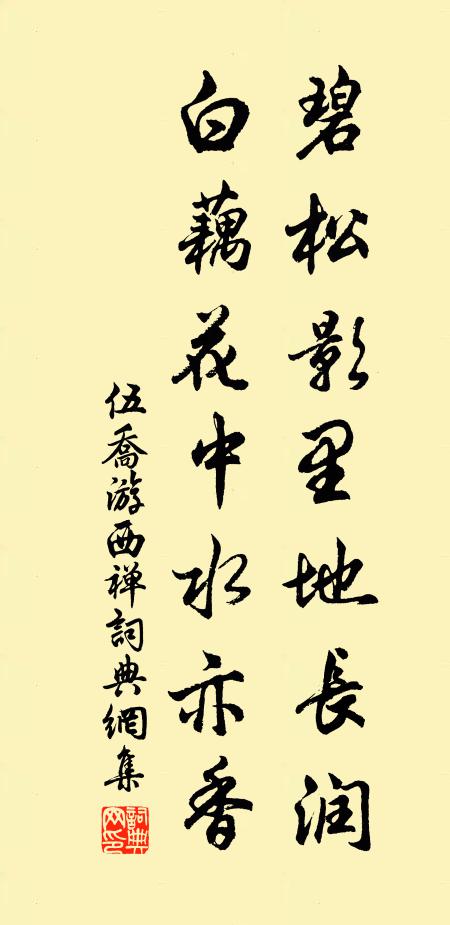 碧松影里地長润
白藕花中水亦香
伍喬游西禅詞典網集
詞典網印